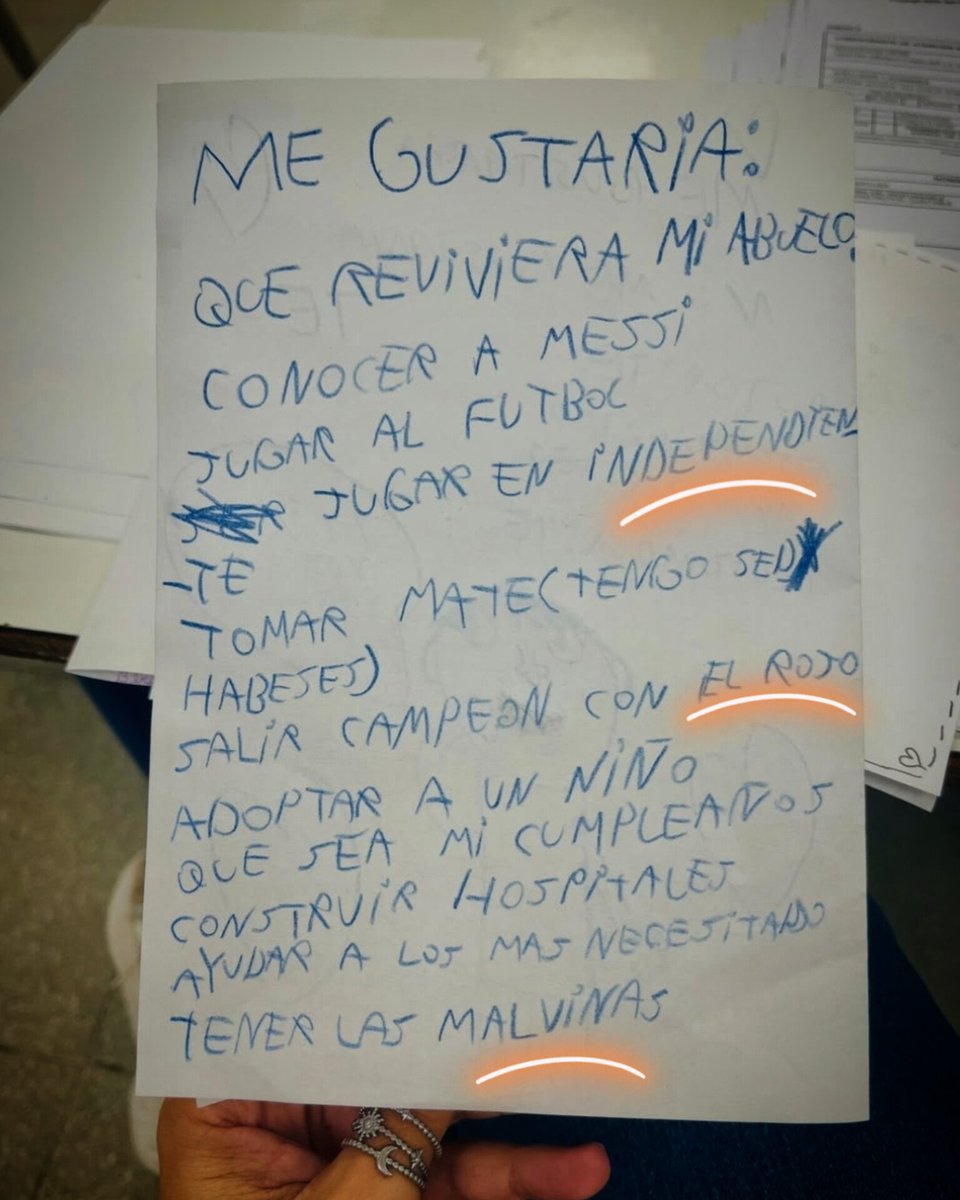 ME GUSTARiA:
QUE REViViERA Mi ABUELO.
CONOCER A MESSi
JUGAR AL FUTBOL
JUGAR EN iNDEPENDIEN
-TE
TOMAR MATE (TENGO SED
HABESES)
SALiR CAMPEON CON EL ROJO
ADOPTAR A UN NiÑO
QUE SEA Mi CUMPLEAÑOS
CONSTRUiR HOSPiTALES
AYUDAR A LOS MAS NECESiTADO
TENER LAS MALViNAS